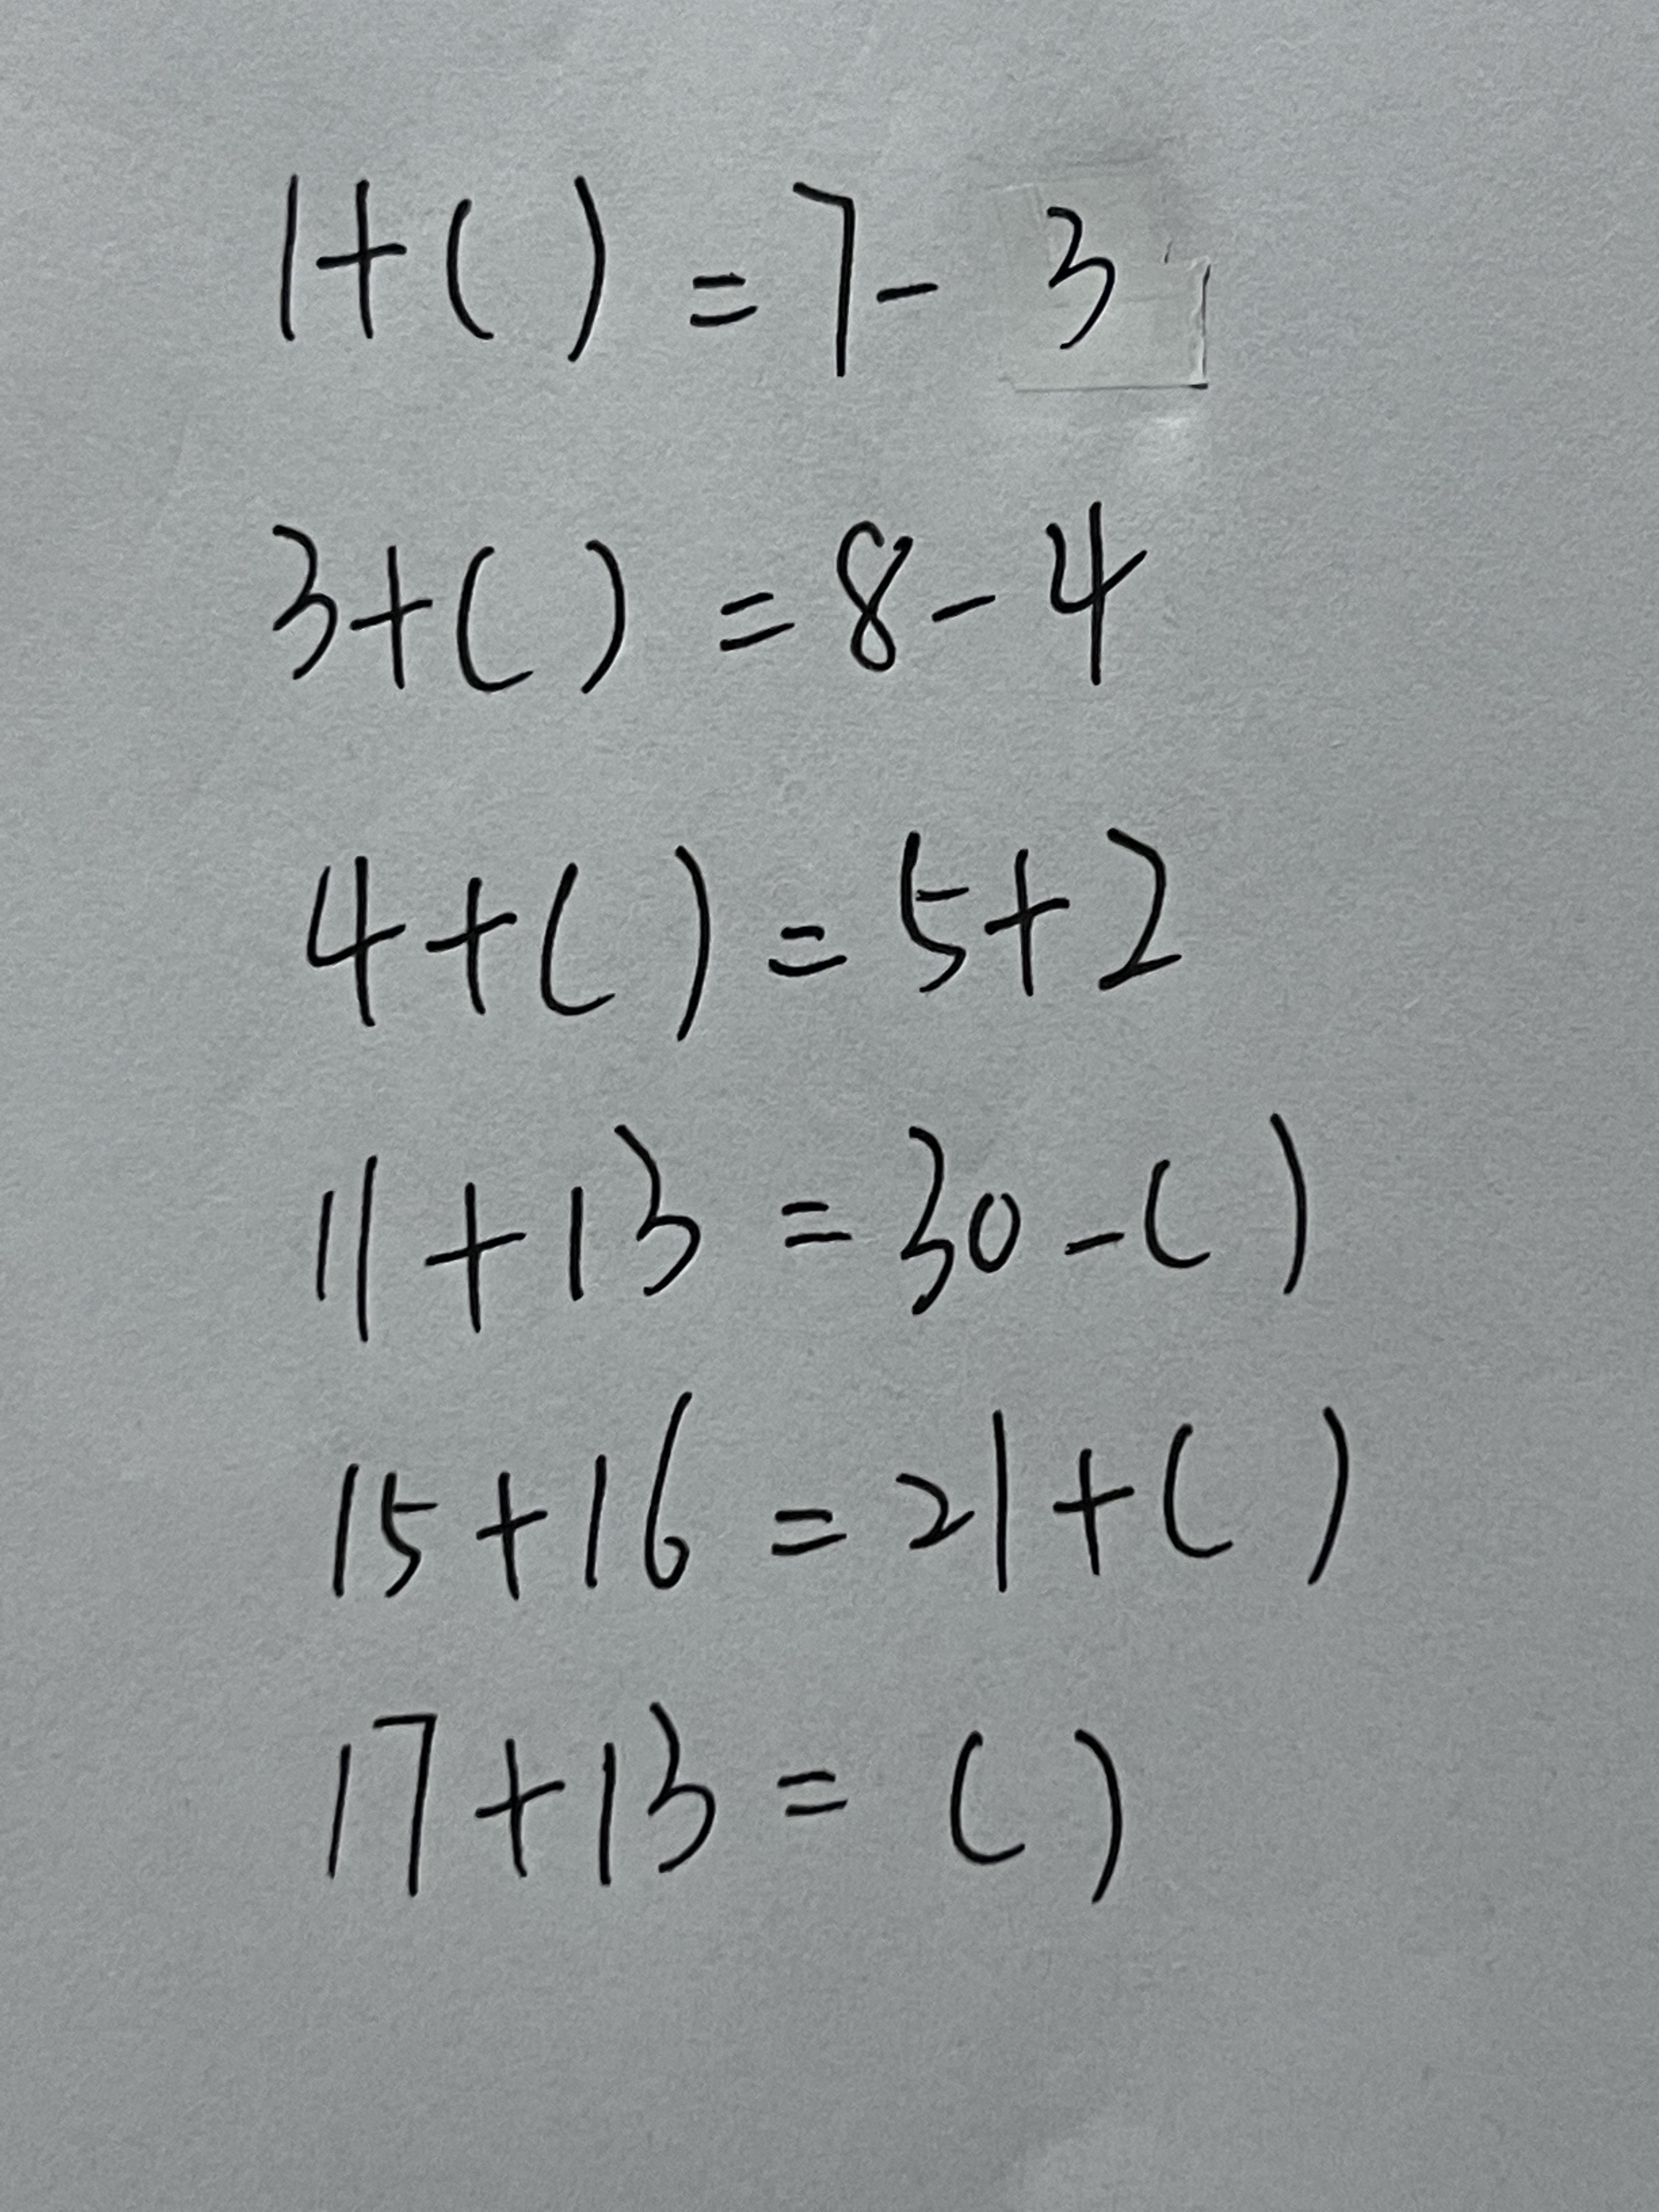 1+( )=7-3
3+( )=8-4
4+( )=5+2
11+13=30-( )
15+16=21+( )
17+13=( )